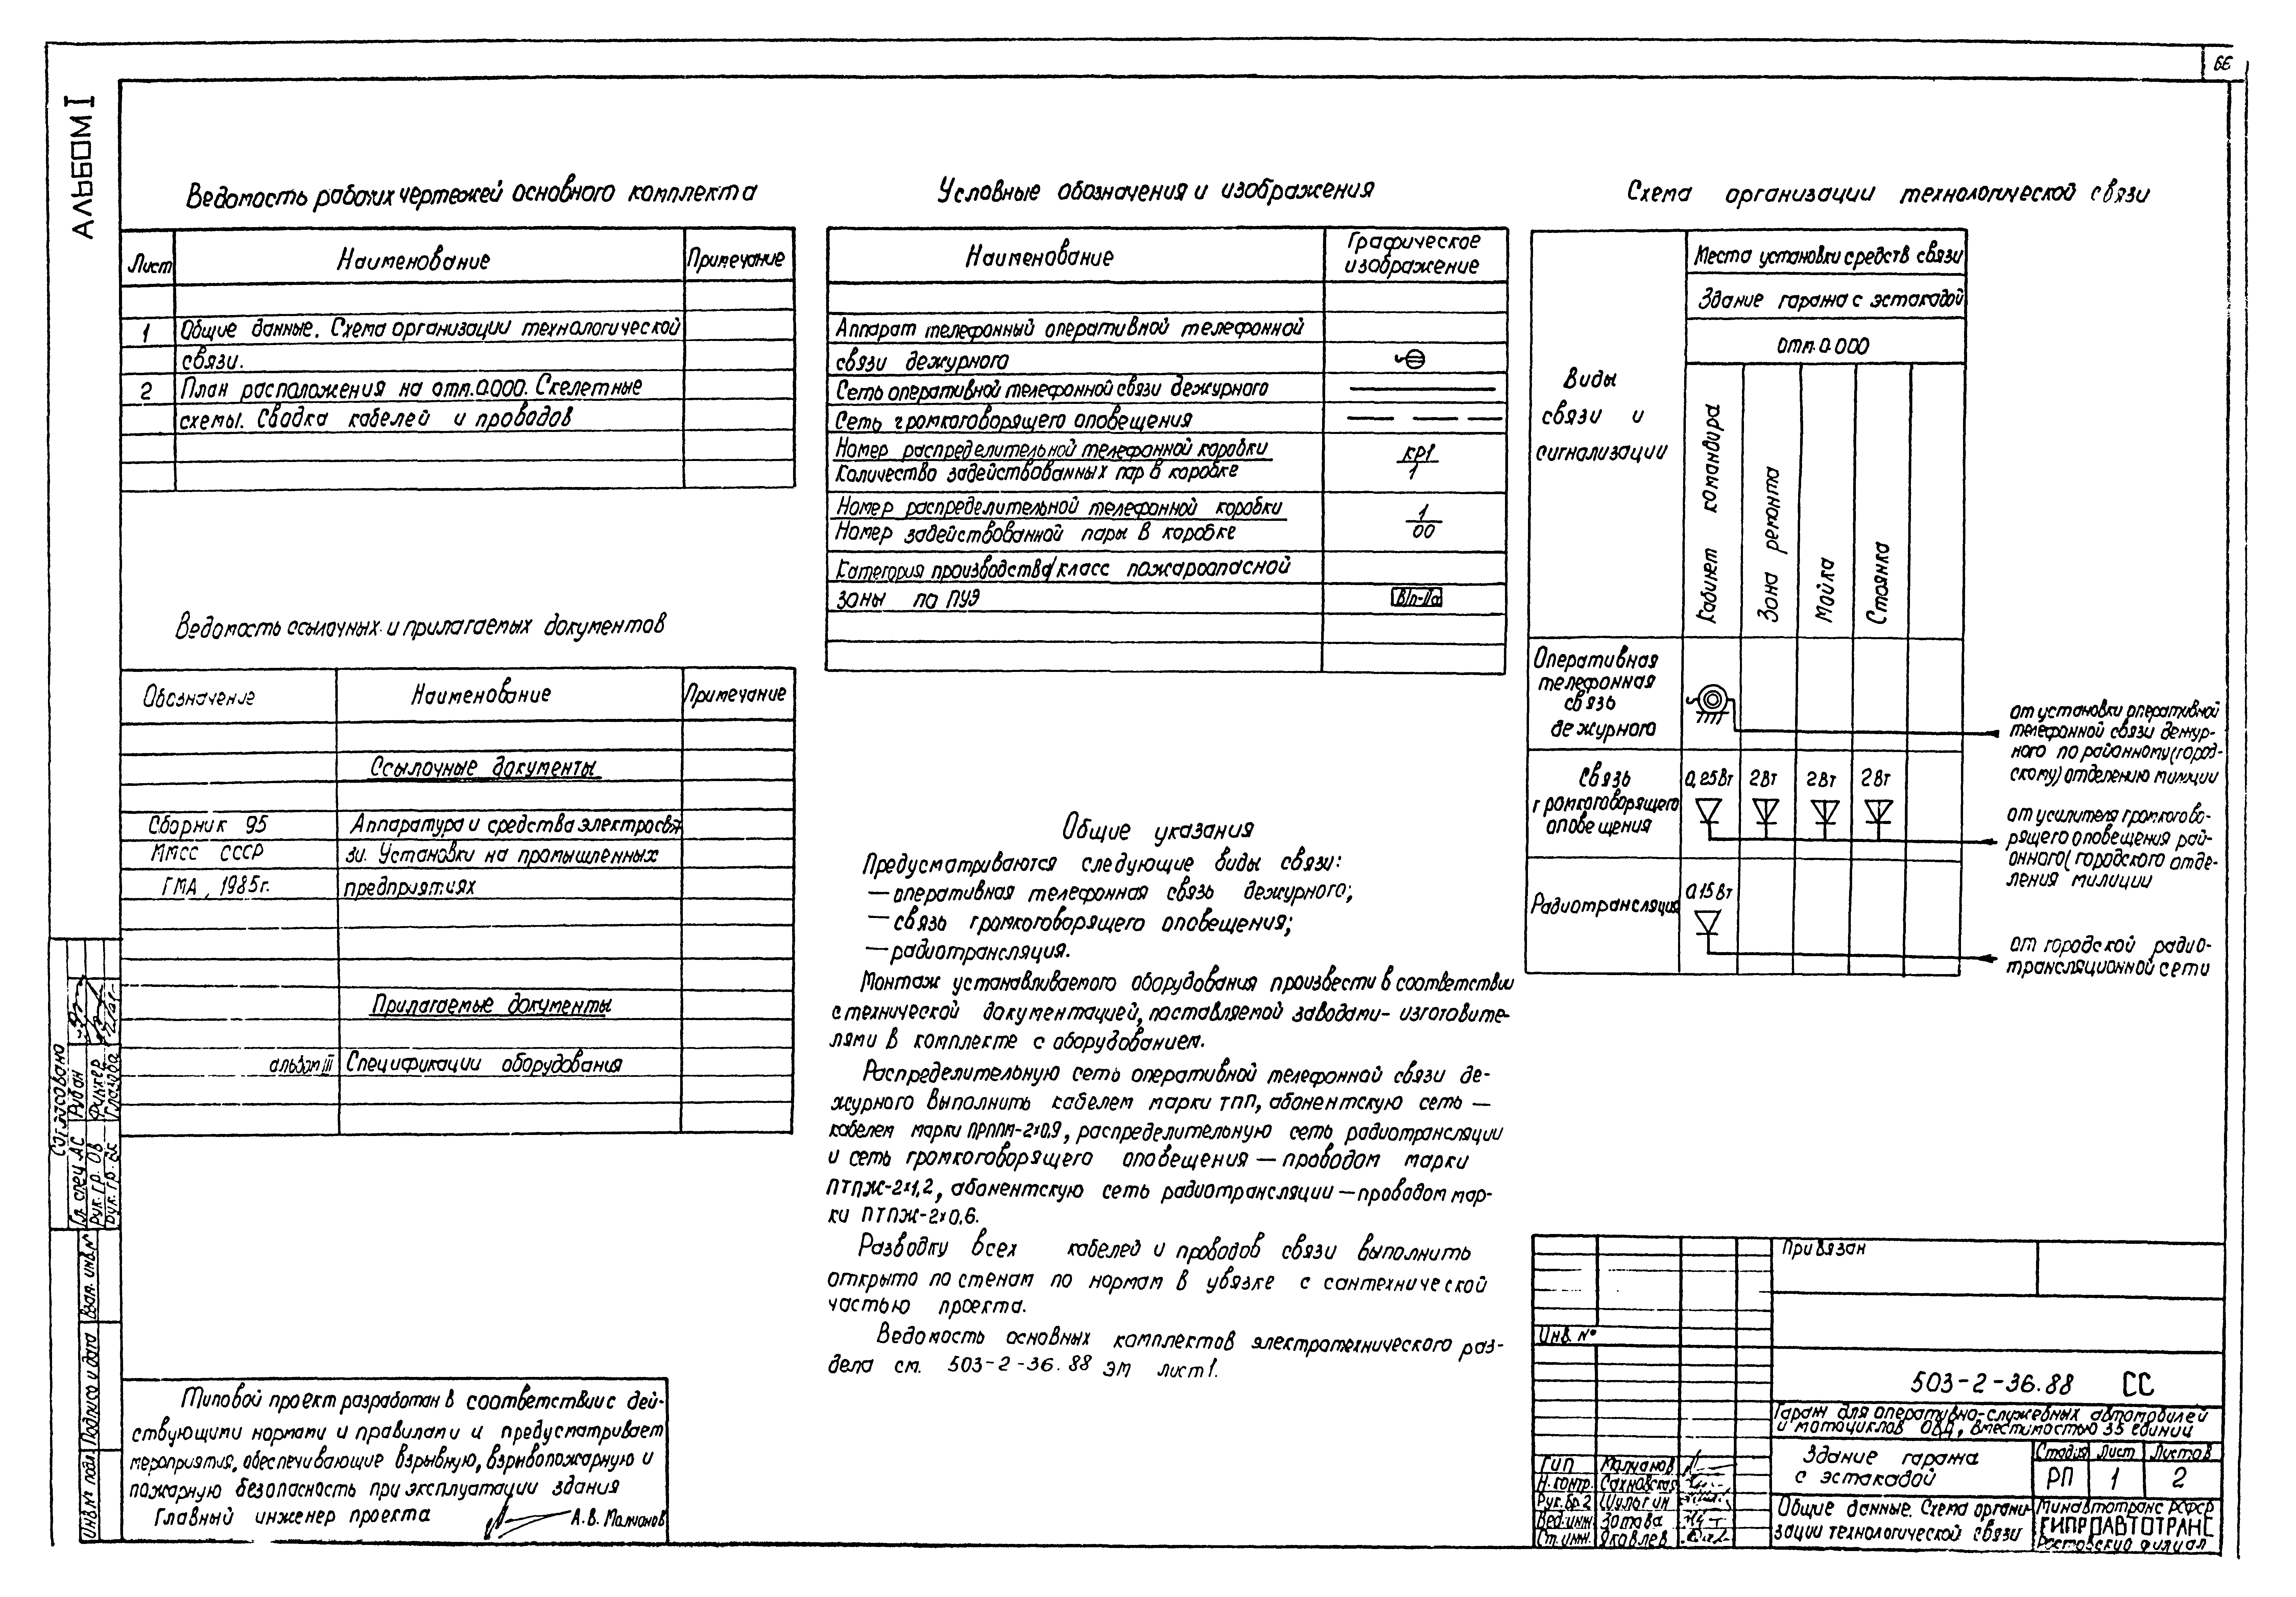 66
АЛЬБОМ I
Ведомость рабочих чертежей основного комплекта
Лист Наименование Примечание
1 Общие данные. Схема организации технологической
связи.
2 План расположения на отм.0.000. Скелетные
схемы. Сводка кабелей и проводов
Ведомость ссылочных и прилагаемых документов
Обозначение Наименование Примечание
Ссылочные документы
Сборник 95 Аппаратура и средства электросвя
ММСС СССР зи. Установки на промышленных
ГМА, 1985г. предприятиях
Прилагаемые документы
альбом III Спецификации оборудования
Типовой проект разработан в соответствии с дей-
ствующими нормами и правилами и предусматривает
мероприятия, обеспечивающие взрывную, взрывопожарную и
пожарную безопасность при эксплуатации здания
Главный инженер проекта А.В. Молчанов
Условные обозначения и изображения
Наименование Графическое
изображение
Аппарат телефонный оперативной телефонной
связи дежурного
Сеть оперативной телефонной связи дежурного
Сеть громкоговорящего оповещения
Номер распределительной телефонной коробки КР1
Количество задействованных пар в коробке 1
Номер распределительной телефонной коробки 1
Номер задействованной пары в коробке 00
Категория производства/класс пожароопасной
зоны по ПУЭ В/п-IIа
Общие указания
Предусматриваются следующие виды связи:
— оперативная телефонная связь дежурного;
— связь громкоговорящего оповещения;
— радиотрансляция.
Монтаж устанавливаемого оборудования произвести в соответствии
с технической документацией, поставляемой заводами-изготовите-
лями в комплекте с оборудованием.
Распределительную сеть оперативной телефонной связи де-
журного выполнить кабелем марки ТПП, абонентскую сеть —
кабелем марки ПРППМ-2х0,9, распределительную сеть радиотрансляции
и сеть громкоговорящего оповещения — проводом марки
ПТПЖ-2х1,2, абонентскую сеть радиотрансляции — проводом мар-
ки ПТПЖ-2х0,6.
Разводку всех кабелей и проводов связи выполнить
открыто по стенам по нормам в увязке с сантехнической
частью проекта.
Ведомость основных комплектов электротехнического раз-
дела см. 503-2-36.88 ЭМ лист 1.
Схема организации технологической связи
Виды
связи и
сигнализации
Места установки средств связи
Здание гаража с эстакадой
отм. 0.000
Кабинет командира
Зона ремонта
Мойка
Стоянка
Оперативная
телефонная
связь
дежурного
от установки оперативной
телефонной связи дежур-
ного по районному (город-
скому) отделению милиции
Связь
громкоговорящего
оповещения
0,25Вт 2Вт 2Вт 2Вт
от усилителя громкогово-
рящего оповещения рай-
онного (городского отде-
ления милиции
Радиотрансляция
0,15Вт
от городской радио-
трансляционной сети
Согласовано
Гл. спец АС Рубан
Рук. Гр. ОВ Функер
Рук. Гр. ВС Глазова
Инв.№ подл. Подпись и дата Взам. инв.№
Привязан
Инв. №
503-2-36.88 СС
Гараж для оперативно-служебных автомобилей
и мотоциклов ОВД, вместимостью 35 единиц
ГИП Молчанов
Н.контр. Сахновская
Рук.бр.2 Шульгин
Вед.инж. Зотова
Ст.инж. Яковлев
Здание гаража
с эстакадой
Стадия Лист Листов
РП 1 2
Общие данные. Схема органи-
зации технологической связи
Минавтотранс РСФСР
ГИПРОАВТОТРАНС
Ростовский филиал